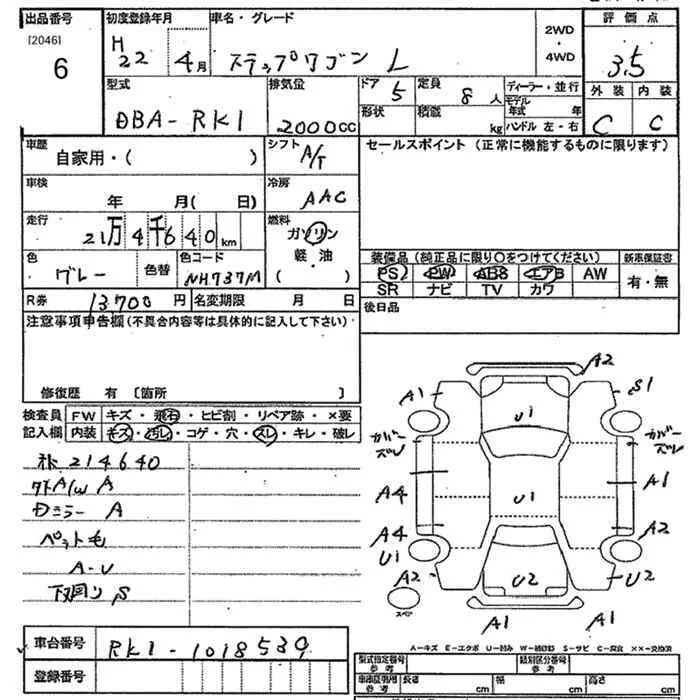 出品番号 初度登録年月 車名・グレード 2WD・4WD 評価点
[2046]
6 H22 4月 ステップワゴン L 3.5
型式 排気量 ドア 5 定員 8人 ディーラー・並行 外装 内装
DBA-RK1 2000cc 形状 積載 kg モデル年式 年 ハンドル 左・右 C C
車歴 自家用・( ) シフト A/T セールスポイント (正常に機能するものに限ります)
車検 年 月( 日) 冷房 AAC
走行 21万4千640km 燃料 ガソリン 軽油 ( )
色 グレー 色替 色コード NH737M
装備品 (純正品に限り○をつけてください) 新車保証書
PS PW ABS エアB AW 有・無
SR ナビ TV カワ
R券 13,700円 名変期限 月 日 後日品
注意事項申告欄(不具合内容等は具体的に記入して下さい)
修復歴 有 〔箇所 〕
検査員 FW キズ・飛石・ヒビ割・リペア跡・×要
記入欄 内装 キズ・汚レ・コゲ・穴・スレ・キレ・破レ
214640
外A/W A
Dミラー A
ペット毛
A-U
下回り S
A2
A1 S1
U1
カバーズレ カバーズレ
A4 U1 A1
A4 A2
U1
A2 U2 U2
スペア
A1 A1
A-キズ E-エクボ U-凹み W-補修跡 S-サビ C-腐食 ××-交換済
車台番号 RK1-1018539
登録番号
型式指定番号 参考 類別区分番号 参考
車庫証明用 参考 長さ cm 幅 cm 高さ cm